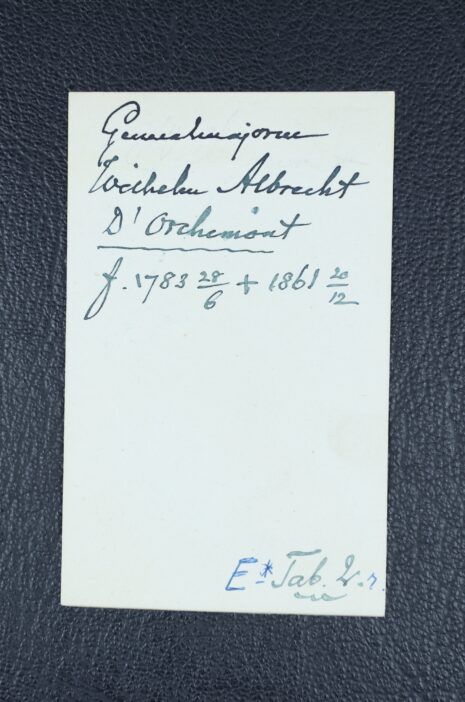 Generalmajoren
Wilhelm Albrecht
D'Orchimont
f. 1783 28/6 + 1861 20/12
E* Tab. 2.